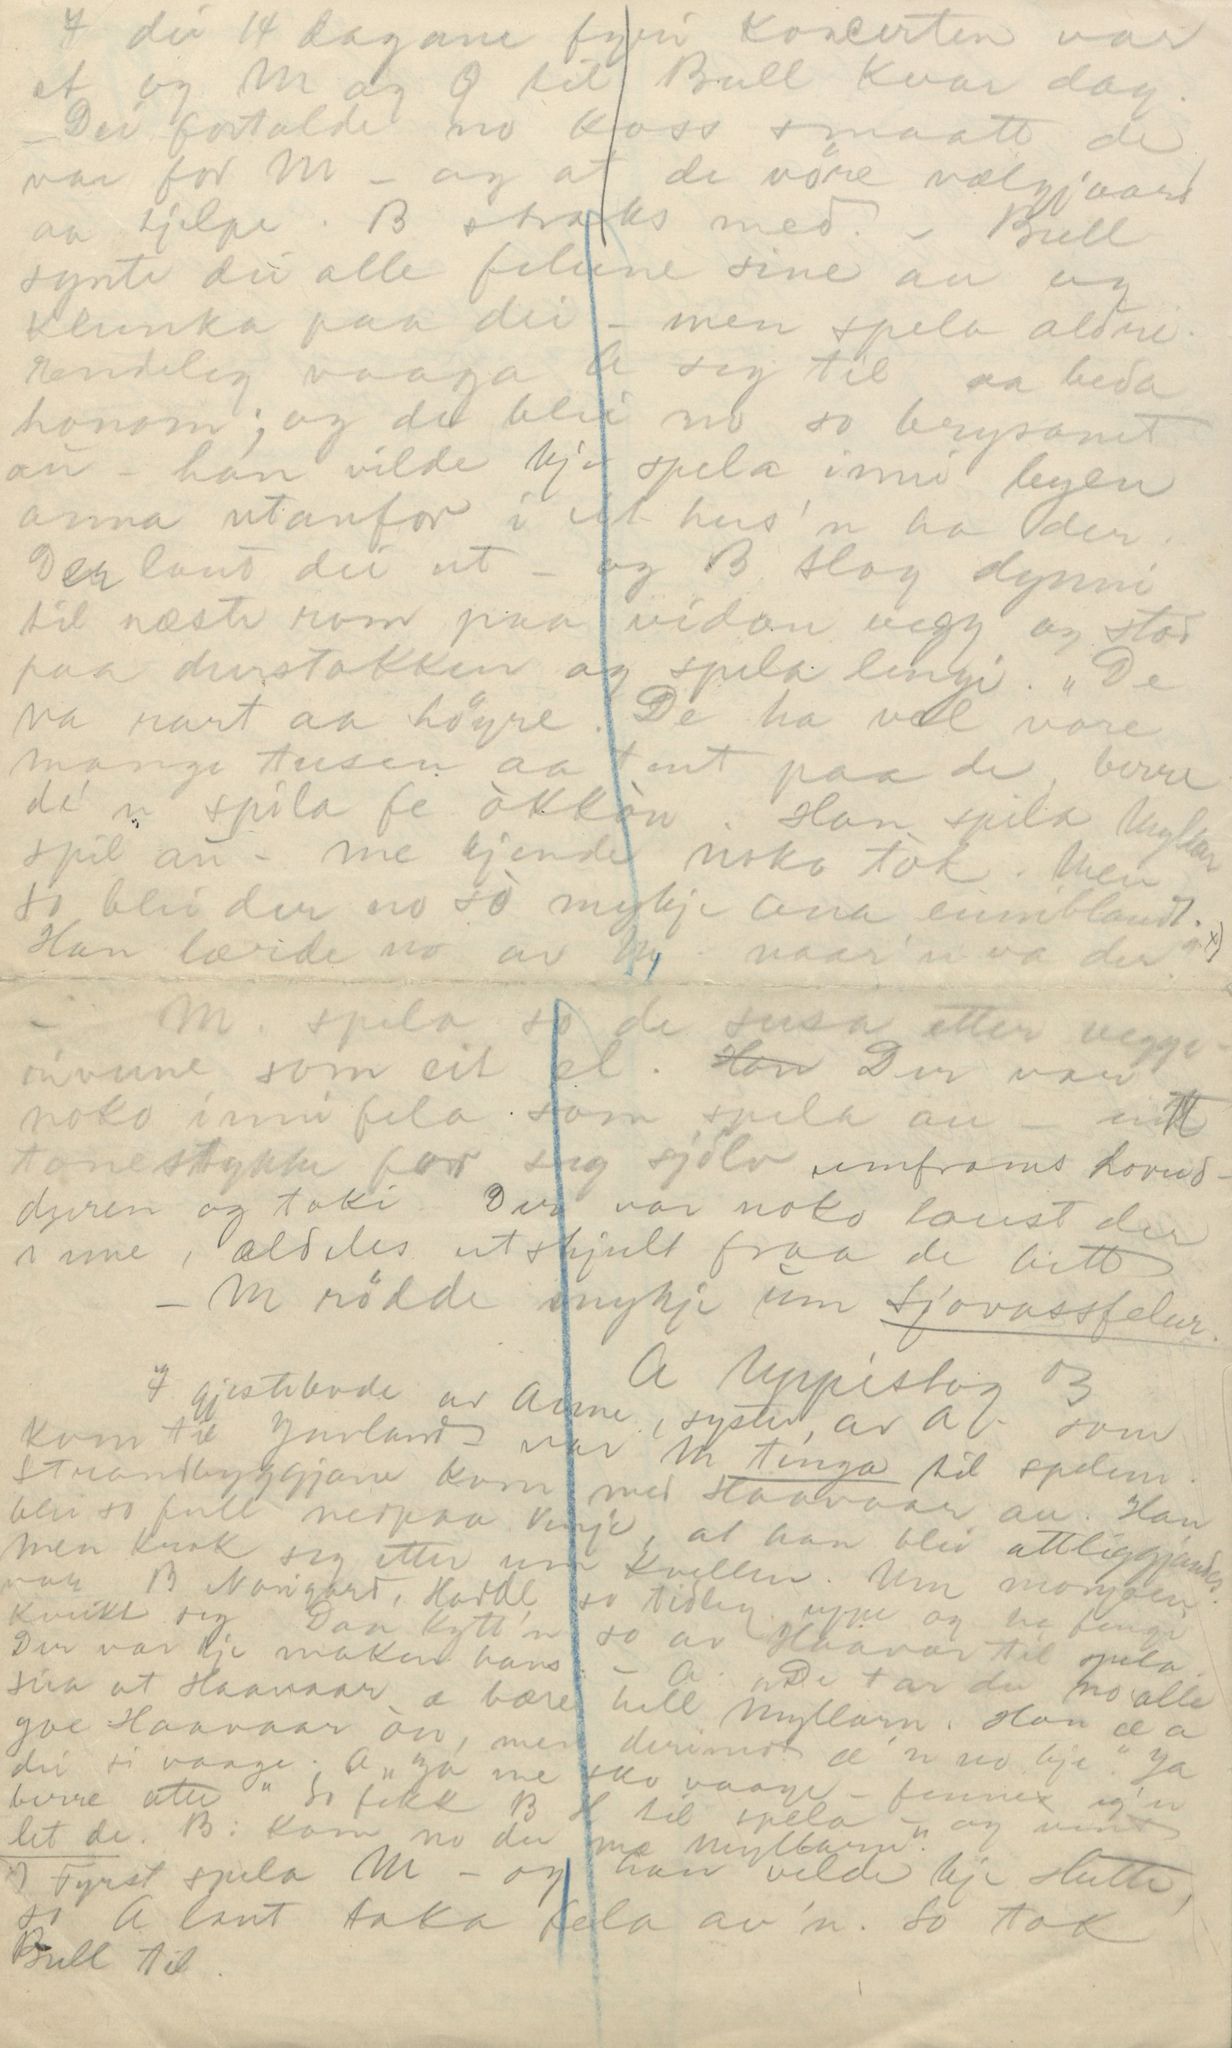 I dei 14 dagane fyri Koncerten var
et og M og O til Bull kvar dag.
– Dei fortalde no koss smaatt de
var for M – og at de vöre velgjaard
aa hjelpe. B straks med. – Bull
synte dei alle felune sine au og
klunka paa dei – men spela aldri.
Rendeleg vaaga A seg til aa beda
honom; og de blei no so
au – han vilde kje spela inni byen
anna utanfor i eit hus'n ha der.
Der laut dei ut – og B slog dynni
til næste rom paa vidan vegg og stod
paa durstokken og spela lengi. "De
va rart aa höyre. De ha vel vore
mange tusen aa tent paa de, berre
de'n spila fe òkkòn. Han spila Myllar
spil au – me kjende noko tok. Men
so blei der no sò mykje ana eimblandt.
Han lærde no av M, naar'n va der x)
– M. spela so de susa etter vegge-
som eit el. Han Der var
noko inni fela som spela au – eitt
tonestykke for seg sjölv umframt hovud-
dyren og toki. Der var noko laust der
inne, aldeles utskjult fraa de hitt
– M rödde mykje um Sjovassfelur.
A Uppistog 03
I gjestebode av Anne, syster av A – som
kom til Jurland – var M tinga til spelem.
Strandbyggjane kom med Haavaar au. Han
blei so full nedpaa Vinje, at han blei attliggjande.
Men krok seg etter um kvellen. Um morgoen
var B Norigard, Hoddl, so tidleg uppe og ha fengi
kvikt seg Daa kytt'n so av Haavar til spela.
Der var kje maken hans. – A. "De tar du no alle
siia at Haavaar æ bære hell Myllarn. Han æ a
goe Haavaar òu, men derimot æ'n no kje." Ja
dei si vaage. A "Ja me sko vaage – finnex eg'n
berre atte" So fekk B H til spela – og vent
let de. B: Kom no du me Myllarn".
x) Fyrst spela M – og han vilde kje slutte,
so A laut taka fela av'n. So tok
Bull til.